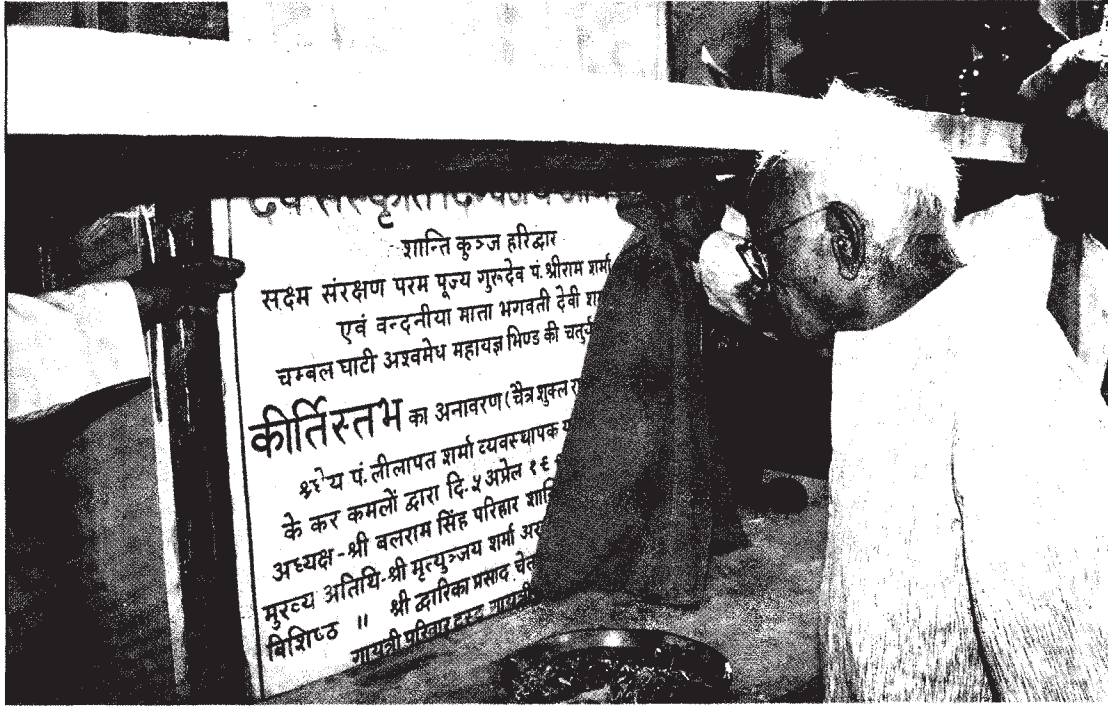 शान्ति कुञ्ज हरिद्वार
सक्ष्म संरक्षण परम पूज्य गुरुदेव पं. श्रीराम शर्मा
एवं वन्दनीया माता भगवती देवी
चम्बल घाटी अश्वमेध महायज्ञ भिण्ड की
कीर्तिस्तंभ का अनावरण (चैत्र शुक्ल
पं. लीलापत शर्मा व्यवस्थापक
के कर कमलों द्वारा दि. ५ अप्रेल
अध्यक्ष - श्री बलराम सिंह परिहार
मुख्य अतिथि - श्री मृत्युञ्जय शर्मा
विशिष्ठ " श्री द्वारिका प्रसाद
गायत्री परिवार ट्रस्ट